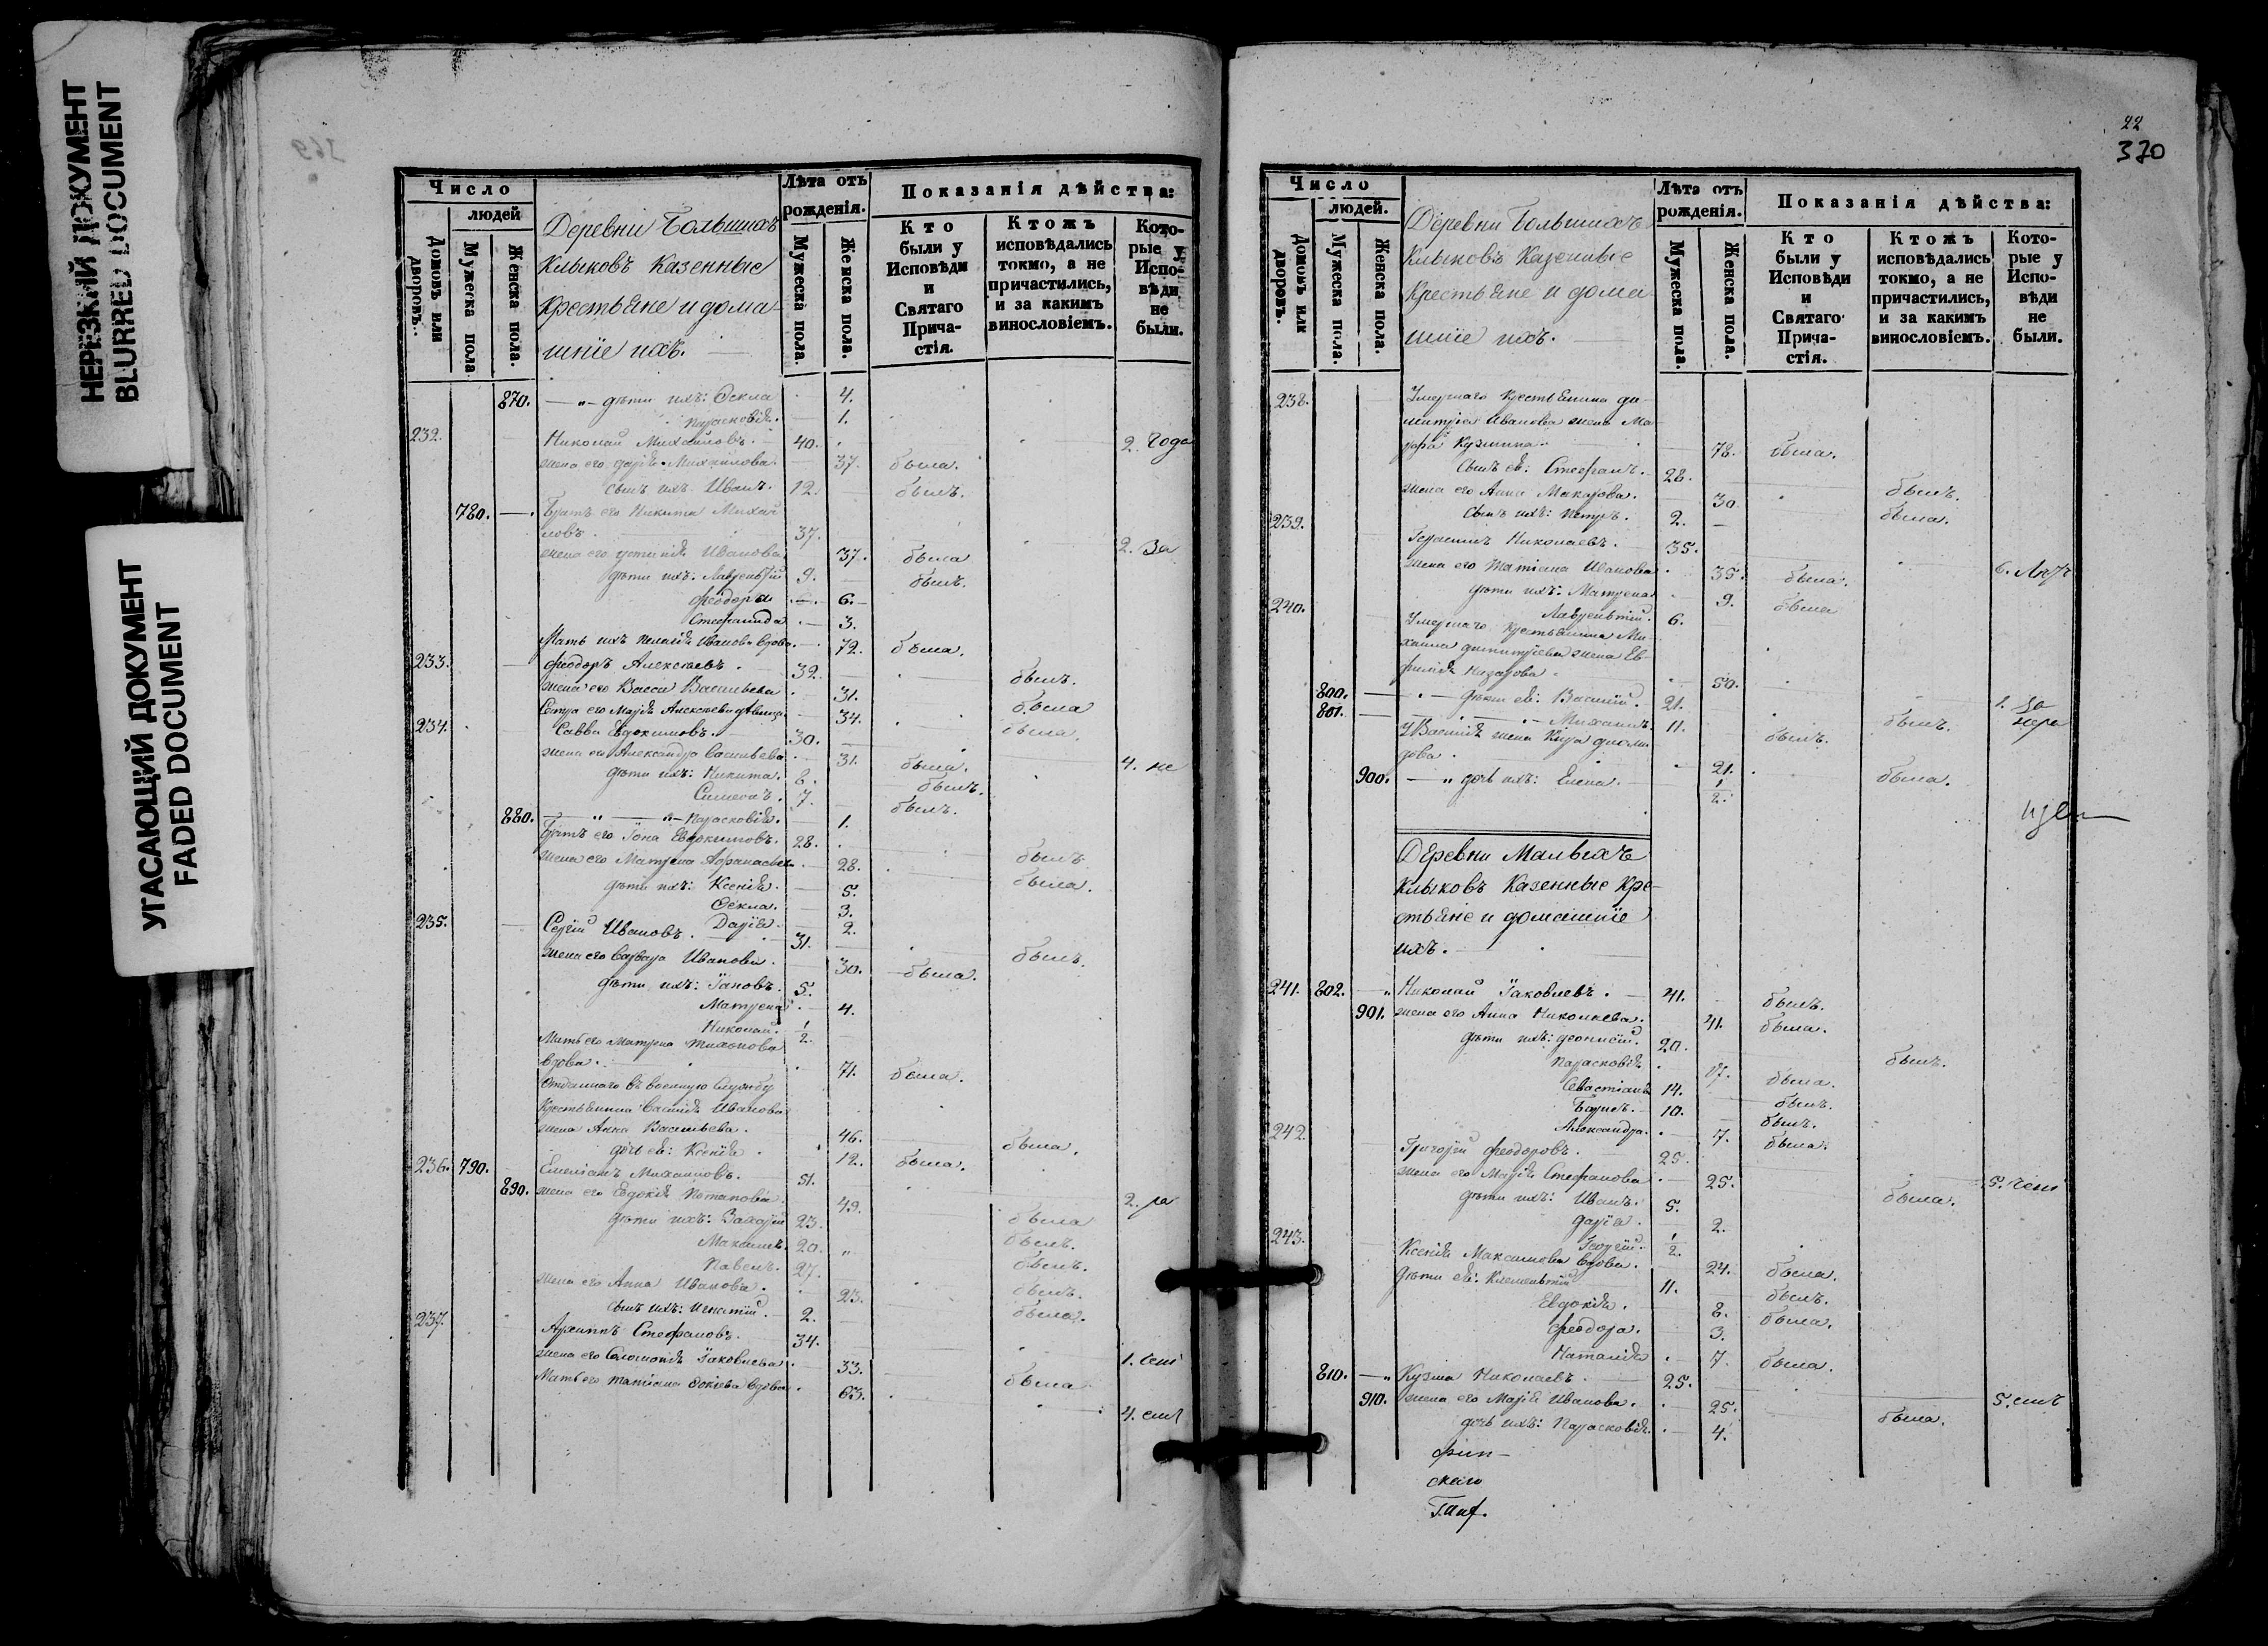 НЕРЕЗКИЙ ДОКУМЕНТ
BLURRED DOCUMENT
УГАСАЮЩИЙ ДОКУМЕНТ
FADED DOCUMENT
369
Число
людей
Домовъ или дворовъ.
Мужеска пола
Женска пола.
Деревни Большихъ
Клыковъ Казенные
Крестьяне и дома-
шніе ихъ.
Лѣта отъ рожденія.
Мужеска пола.
Женска пола.
Показанія дѣйства:
Кто были у Исповѣди и Святаго Прича-стія.
Ктожъ исповѣдались токмо, а не причастились, и за какимъ винословіемъ.
Кото-рые у Испо-вѣди не были.
870. — „ — дѣти ихъ: Ѳекла 4.
Параскевія. 1.
232. Николай Михайловъ. 40. 2. года
жена его Дарія Михайлова 37. была.
сынъ ихъ Иванъ. 12. былъ.
780. Братъ его Никита Михай-
ловъ. 37. 2. За
жена его Устинія Иванова 37. была
дѣти ихъ: Лаврентій 9. былъ.
Феодора 6.
Стефанида 3.
Мать ихъ Пелагія Иванова вдова 72. была.
233. Феодоръ Алексеевъ. 32. былъ.
жена его Васса Васильева 31. была
Сестра его Марія Алексеева дѣвица 34. была.
234. Савва Евдокимовъ. 30. 4. не
жена его Александра Васильева 31. была.
дѣти ихъ: Никита. 8. былъ.
Симеонъ. 7. былъ.
880. — „ — „ — Параскевія. 1.
Братъ его Іона Евдокимовъ. 28. былъ
жена его Матрена Афанасьева 28. была.
дѣти ихъ: Ксенія. 5.
Ѳекла. 3.
Дарія. 2.
235. Сергій Ивановъ. 31. былъ.
жена его Варвара Иванова. 30. была.
дѣти ихъ: Іаковъ. 5.
Матрена 4.
Николай. 1/2
Мать его Матрена Тихонова
вдова. 71. была.
Отданнаго въ военную службу
Крестьянина Василія Иванова
жена Анна Васильева. 46. была.
дочь ея: Ксенія. 12. была.
236. 790. Емеліанъ Михайловъ. 51. 2. ра
890. жена его Евдокія Потапова. 49. была
дѣти ихъ: Захарій 23. былъ.
Максимъ. 20. былъ.
Павелъ. 27. былъ.
жена его Анна Иванова. 23. была.
сынъ ихъ: Игнатій. 2.
237. Архиппъ Стефановъ. 34. 1. сей
жена его Соломонія Іаковлева 33. была
Мать его Татіана Фокіева вдова 63. 4. сит
22
370
Число
людей.
Домовъ или дворовъ.
Мужеска пола.
Женска пола.
Деревни Большихъ
Клыковъ Казенные
Крестьяне и дома-
шніе ихъ.
Лѣта отъ рожденія.
Мужеска пола.
Женска пола.
Показанія дѣйства:
Кто были у Исповѣди и Святаго Прича-стія.
Ктожъ исповѣдались токмо, а не причастились, и за какимъ винословіемъ.
Кото-рые у Испо-вѣди не были.
238. Умершаго Крестьянина Ди-
митрія Иванова жена Ма
рфа Кузмина. 78. была.
Сынъ ея: Стефанъ. 28. былъ.
жена его Анна Макарова. 30. была.
Сынъ ихъ: Петръ. 2.
239. Герасимъ Николаевъ. 35. 6.
жена его Татіана Иванова 35. была.
дѣти ихъ: Матрена 9. была
Лаврентій. 6.
240. Умершаго Крестьянина Ми-
хаила Димитріева жена Ев-
фимія Назарова. 50. 1. За
800. дѣти ея: Василій. 21. былъ.
801. Михаилъ. 11. былъ.
У Василія жена Кира Диоми
дова. 21. была.
900. — „ дочь ихъ: Елена. 1/2
Деревни Малыхъ
Клыковъ Казенные Кре-
стьяне и домашніе
ихъ.
241. 802. Николай Іаковлевъ. 41. былъ.
901. жена его Анна Николаева. 41. была.
дѣти ихъ: Деонисій. 20. былъ.
Параскевія 17. была.
Севастіанъ 14. былъ.
Борисъ. 10. былъ.
Александра. 7. была.
242. Григорій Феодоровъ. 25. 5.
жена его Марія Стефанова 25. была.
дѣти ихъ: Иванъ. 5.
Дарія. 2.
Георгій. 1/2
243. Ксенія Максимова вдова. 24. была.
дѣти ея: Климентій 11. былъ.
Евдокія. 8. была.
Феодора. 3.
Наталія 7. была.
810. Кузма Николаевъ. 25. 5.
910. жена его Марія Иванова. 25. была.
дочь ихъ: Параскевія. 4.